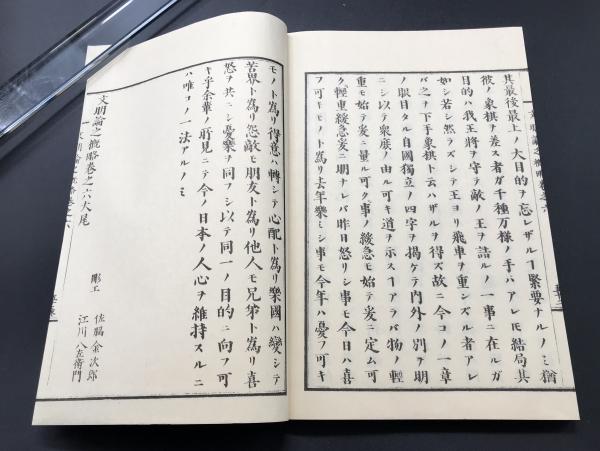 其最後最上ノ大目的ヲ忘レザルヿ緊要ナルノミ猶
彼ノ象棋ヲ差ス者ガ千種万様ノ手ハアレ𪜈結局其
目的ハ我王將ヲ守テ敵ノ王ヲ詰ルノ一事ニ在ルガ
如シ若シ然ラズシテ王ヨリ飛車ヲ重ンズル者アレ
バ之ヲ下手象棋ト云ハザルヲ得ズ故ニ今コノ一章
ノ眼目タル自國獨立ノ四字ヲ掲ケテ内外ノ別ヲ明
ニシ以テ衆庶ノ由ル可キ道ヲ示スヿアラバ物ノ輕
重モ始テ爰ニ量ル可ク事ノ緩急モ始テ爰ニ定ム可
ク輕重緩急爰ニ明ナレバ昨日怒リシ事モ今日ハ喜
フ可キモノト為リ去年樂ミシ事モ今年ハ憂フ可キ
モノト為リ得意ハ轉シテ心配ト為リ樂國ハ變シテ
苦界ト為リ怨敵モ朋友ト為リ他人モ兄弟ト為リ喜
怒ヲ共ニシ憂樂ヲ同フシ以テ同一ノ目的ニ向フ可
キ乎余輩ノ所見ニテ今ノ日本ノ人心ヲ維持スルニ
ハ唯コノ一法アルノミ
文明論之概略卷之六大尾
彫工
佐脇金次郎
江川八左衛門